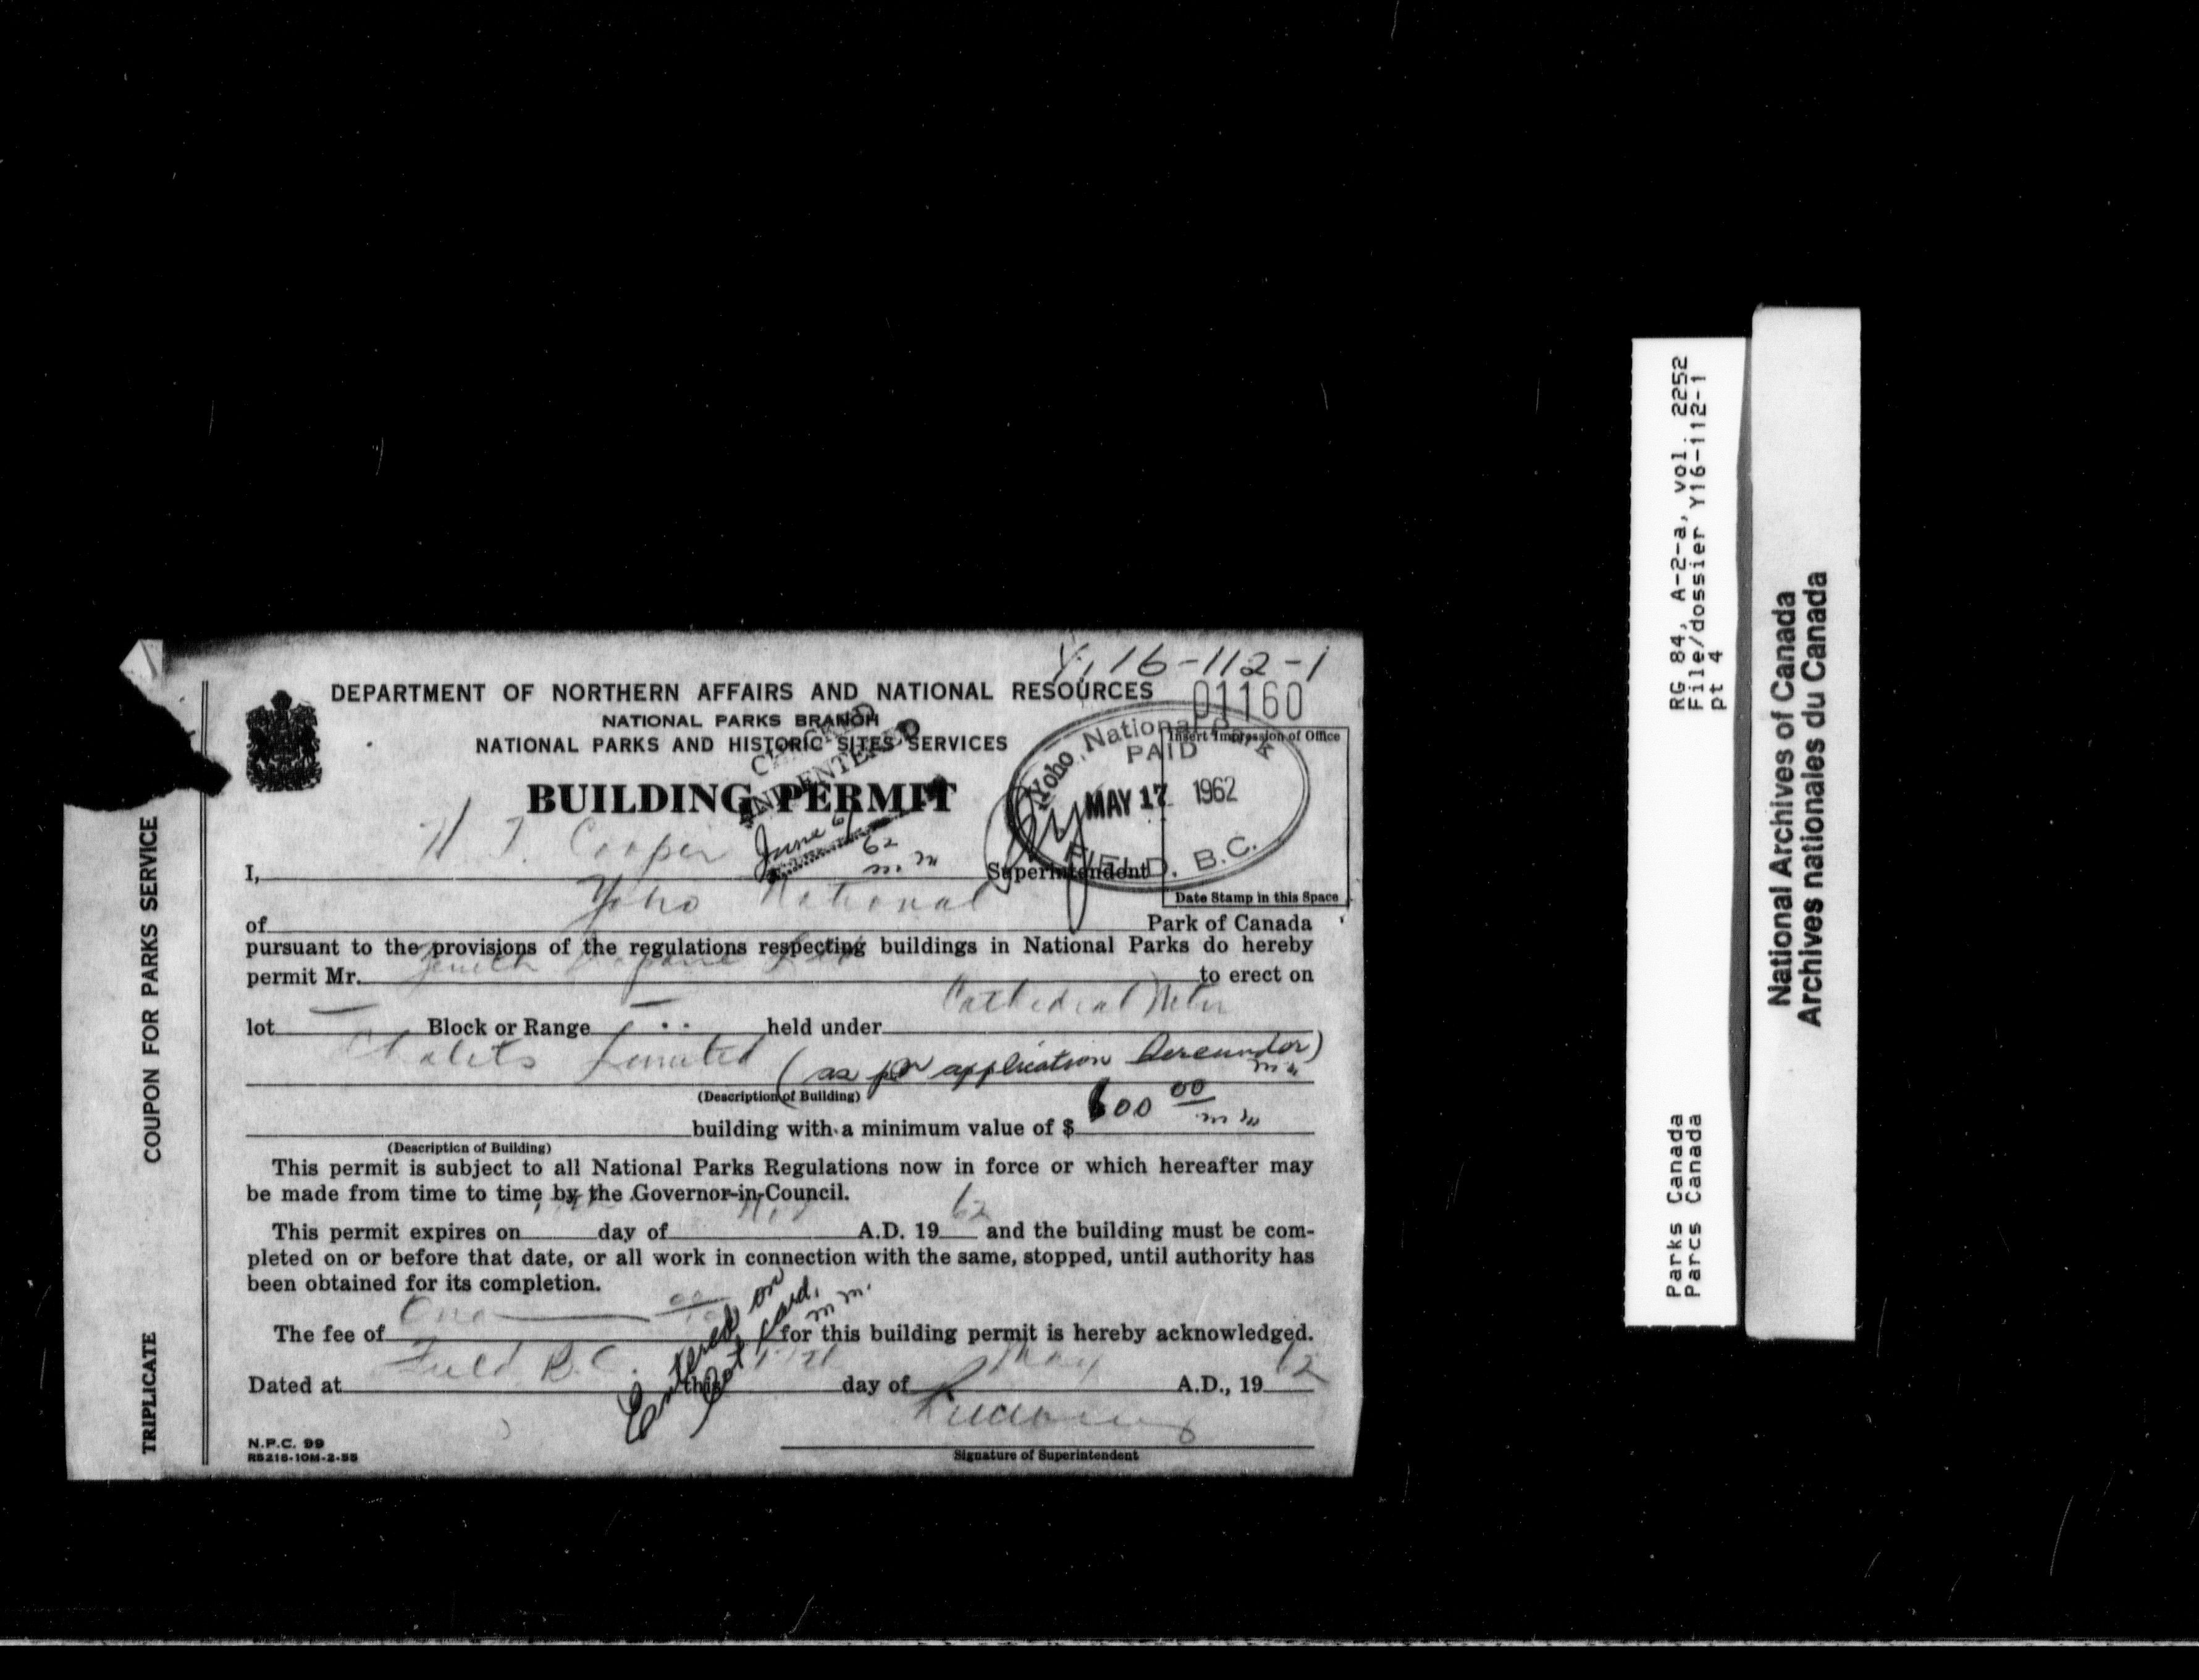 Y.16-112-1
DEPARTMENT OF NORTHERN AFFAIRS AND NATIONAL RESOURCES
01160
NATIONAL PARKS BRANCH
NATIONAL PARKS AND HISTORIC SITES SERVICES
BUILDING PERMIT
CHECKED
AND ENTERED
June 6/
62
m.m
Insert Impression of Office
Yoho National Park
PAID
MAY 17 1962
FIELD. B.C.
Date Stamp in this Space
I, Cooper Superintendent
of Yoho National Park of Canada
pursuant to the provisions of the regulations respecting buildings in National Parks do hereby
permit Mr. to erect on
lot — Block or Range — held under Cathedral Mtn
Chalets Limited (as per application hereunder)
m.m
(Description of Building)
building with a minimum value of $ 600 00
m m
(Description of Building)
This permit is subject to all National Parks Regulations now in force or which hereafter may
be made from time to time by the Governor-in-Council.
This permit expires on day of A.D. 19 62 and the building must be com-
pleted on or before that date, or all work in connection with the same, stopped, until authority has
been obtained for its completion.
The fee of One — for this building permit is hereby acknowledged.
Entered on
Card.
m m.
Dated at Field B.C. this 17th day of May A.D., 19 62
Signature of Superintendent
N.P.C. 99
R5216-10M-2-55
COUPON FOR PARKS SERVICE
TRIPLICATE
RG 84, A-2-a, vol. 2252
File/dossier Y16-112-1
pt 4
Parks Canada
Parcs Canada
National Archives of Canada
Archives nationales du Canada